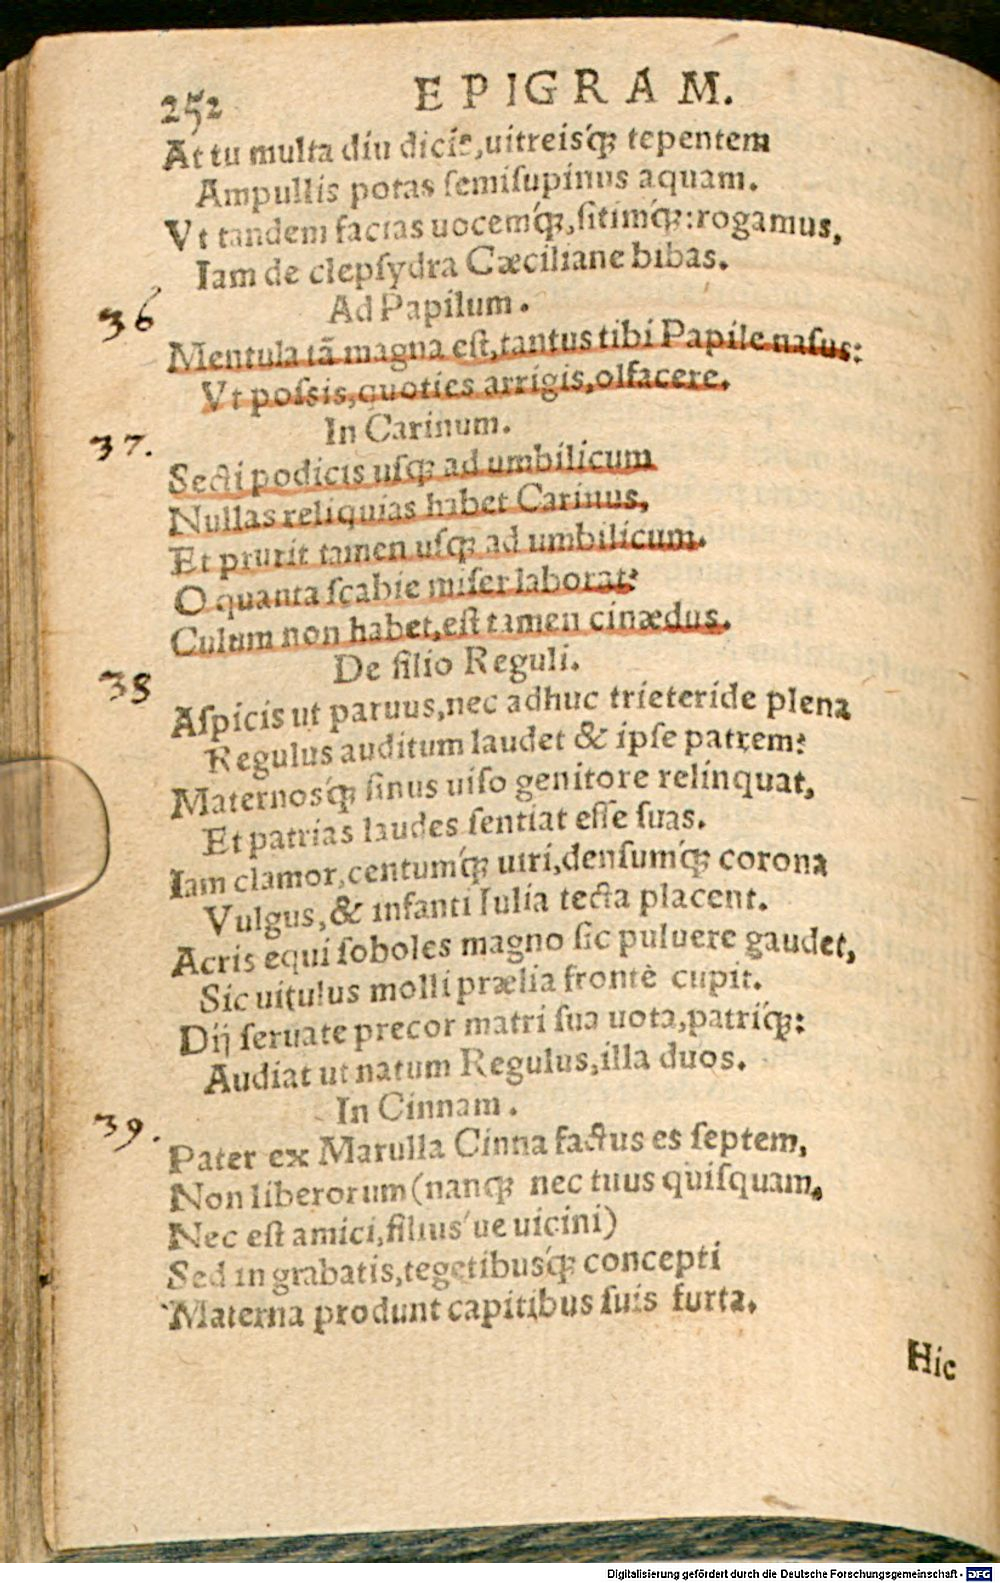 252 EPIGRAM.
At tu multa diu dicis, uitreisq́; tepentem
Ampullis potas semisupinus aquam.
Vt tandem facias uocemq́;, sitimq́;: rogamus,
Iam de clepsydra Cæciliane bibas.
36 Ad Papilum.
Mentula tā magna est, tantus tibi Papile nasus:
Vt possis, quoties arrigis, olfacere.
37. In Carinum.
Secti podicis usq; ad umbilicum
Nullas reliquias habet Carinus,
Et prurit tamen usq; ad umbilicum.
O quanta scabie miser laborat?
Culum non habet, est tamen cinædus.
38 De filio Reguli.
Aspicis ut paruus, nec adhuc trieteride plena
Regulus auditum laudet & ipse patrem?
Maternosq́; sinus uiso genitore relinquat,
Et patrias laudes sentiat esse suas.
Iam clamor, centumq́; uiri, densumq́; corona
Vulgus, & infanti Iulia tecta placent.
Acris equi soboles magno sic puluere gaudet,
Sic uitulus molli prælia frontè cupit.
Dij seruate precor matri sua uota, patriq́;:
Audiat ut natum Regulus, illa duos.
39. In Cinnam.
Pater ex Marulla Cinna factus es septem,
Non liberorum (nanq; nec tuus quisquam,
Nec est amici, filius' ue uicini)
Sed in grabatis, tegetibusq́; concepti
Materna produnt capitibus suis furta.
Hic
Digitalisierung gefördert durch die Deutsche Forschungsgemeinschaft - DFG